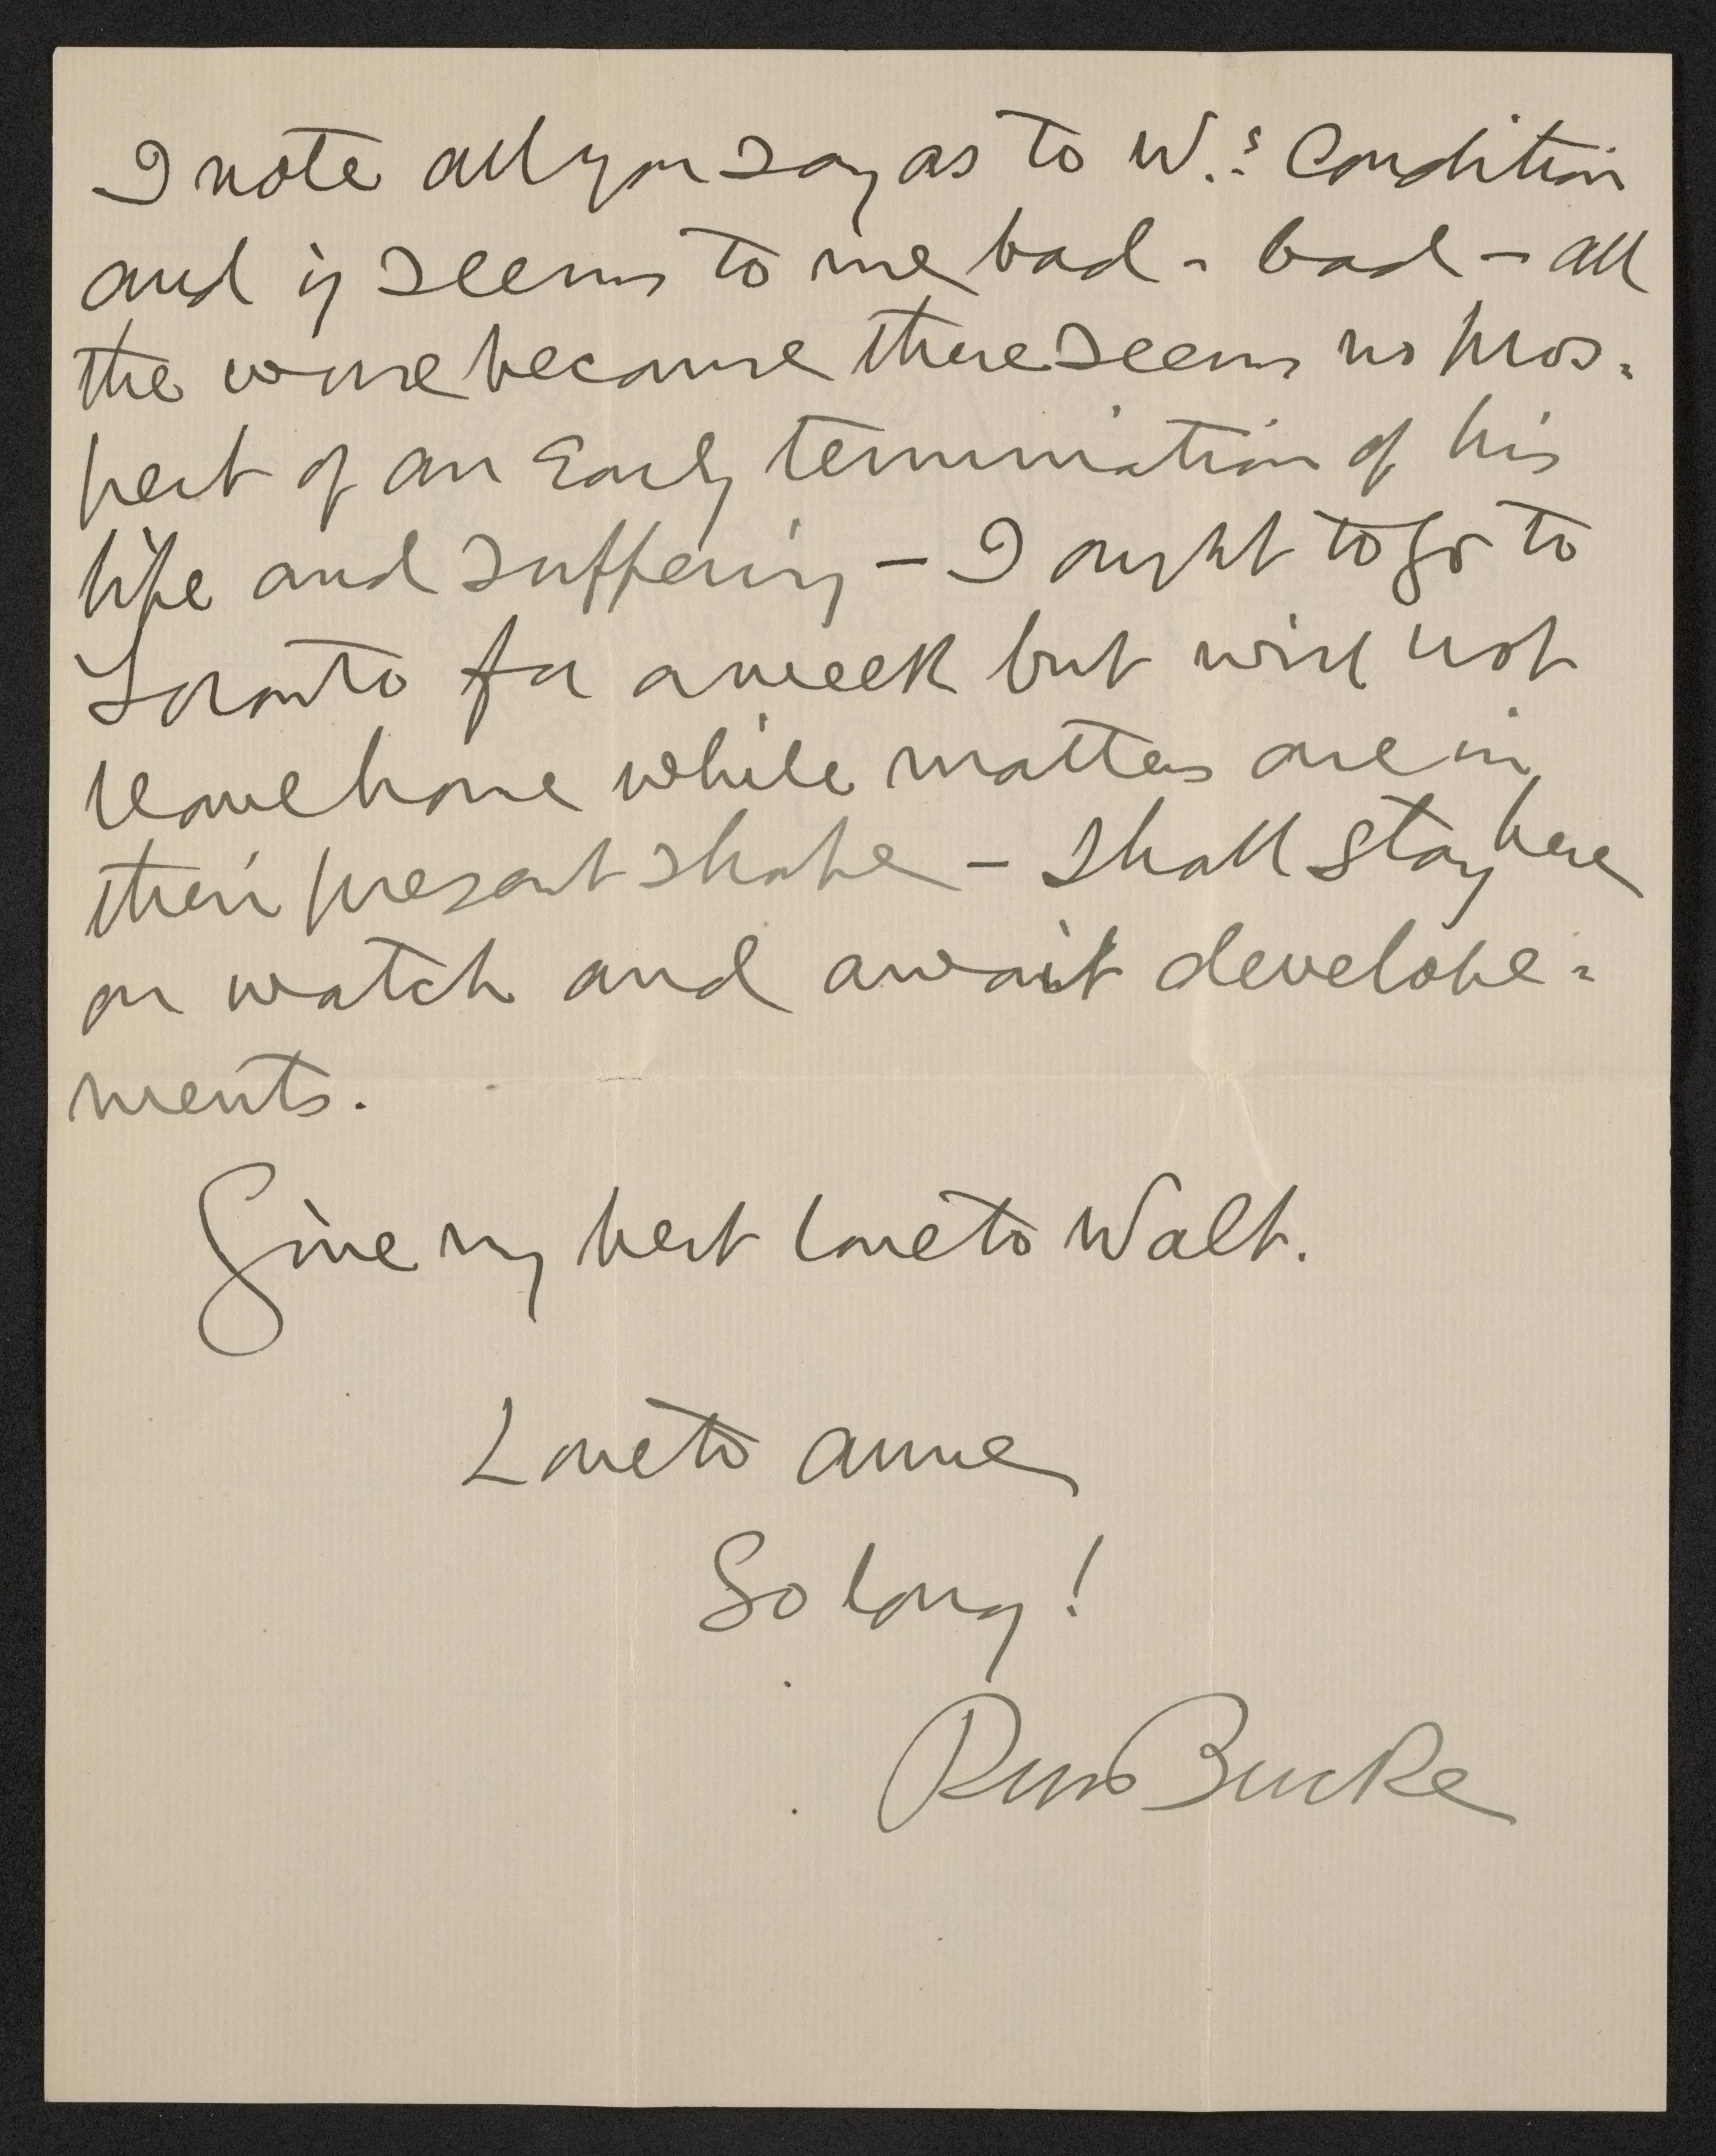 I note all you say as to W.'s Condition
and it seems to me bad - bad - all
the worse because there seems no pros-
pect of an Early termination of his
life and suffering - I ought to go to
Toronto for a week but will not
leave home while matters are in
their present shape - shall stay here
on watch and await develope-
ments.
Give my best love to Walt.
Love to Anne
So long!
RM Bucke